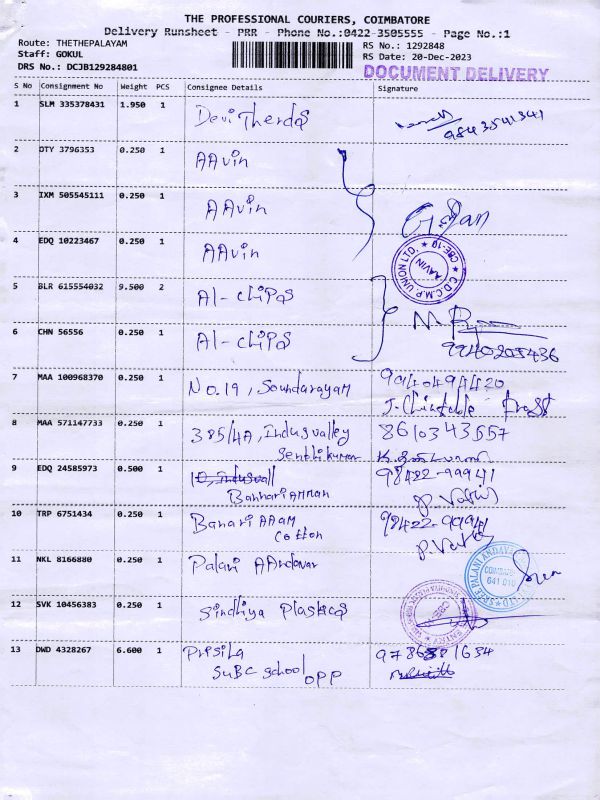 THE PROFESSIONAL COURIERS, COIMBATORE
Delivery Runsheet - PRR - Phone No.:0422-3505555 - Page No.:1
Route: THETHEPALAYAM
Staff: GOKUL
DRS No.: DCJB129284801
RS No.: 1292848
RS Date: 20-Dec-2023
DOCUMENT DELIVERY
S No Consignment No Weight PCS Consignee Details Signature
1 SLM 335378431 1.950 1 Devi Therdas 9843541341
2 DTY 3796353 0.250 1 AAvin
3 IXM 505545111 0.250 1 AAvin
4 EDQ 10223467 0.250 1 AAvin
C.D.C.M.P. UNION LTD. ★ CBE-10 ★
AAVIN
5 BLR 615554032 9.500 2 Al-chips
6 CHN 56556 0.250 1 Al-chips 9940205436
7 MAA 100968370 0.250 1 No.19, Soundarayam 9940494420
8 MAA 571147733 0.250 1 385/4A, Indusvalley 8610343557
Senthilkumar
9 EDQ 24585973 0.500 1 98422-99941
BannariAmman
10 TRP 6751434 0.250 1 Banari AAam 98422-99941
Cotton
11 NKL 8166880 0.250 1 Palani AAndavar
SREE PALANI ANDAVAR
641 010
12 SVK 10456383 0.250 1 Sindhiya Plastics
13 DWD 4328267 6.600 1 Prisila
SuBC school opp